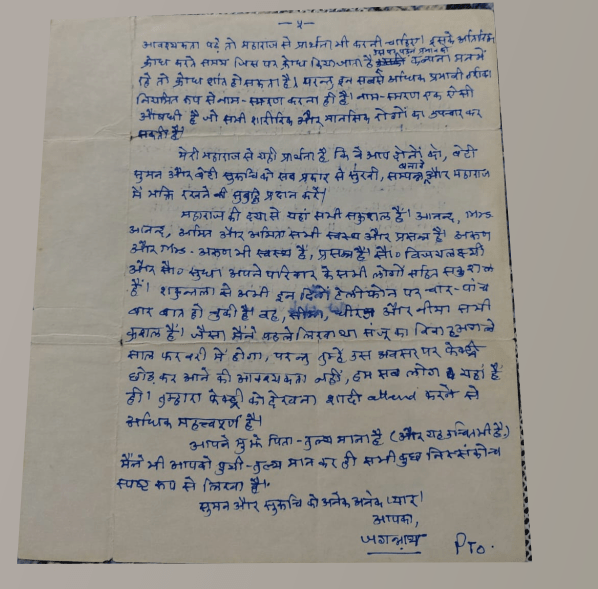 — ५ —
आवश्यकता पड़े तो महाराज से प्रार्थना भी करनी चाहिए। इसके अतिरिक्त
क्रोध करते समय जिस पर क्रोध किया जाता है कल्पना मन में
रहे तो क्रोध शांत हो सकता है। परन्तु इन सबसे अधिक प्रभावी तरीका
नियमित रूप से नाम-स्मरण करना ही है। नाम-स्मरण एक ऐसी
औषधी है जो सभी शारीरिक और मानसिक रोगों का उपचार कर
सकती है।
मेरी महाराज से यही प्रार्थना है कि वे आप दोनों को, बेटी
सुमन और बेटी सुरूचि को सब प्रकार से सुखी, सम्पन्न बनावें और महाराज
में भक्ति रखने की सुबुद्धि प्रदान करें।
महाराज की दया से यहां सभी सकुशल हैं। आनन्द, Mrs.
आनन्द, अमित और अमिता सभी स्वस्थ और प्रसन्न हैं। अरूण
और Mrs. अरूण भी स्वस्थ हैं, प्रसन्न हैं। सौ० विजयलक्ष्मी
और सौ० सुधा अपने परिवार के सभी लोगों सहित सकुशल
हैं। शकुन्तला से अभी इन दिनों टेलीफोन पर चार-पांच
बार बात हो चुकी है। वह, धीरज और नीमा सभी
कुशल हैं। जैसा मैंने पहले लिखा था संजू का विवाह अगले
साल फरवरी में होगा, परन्तु तुम्हें उस अवसर पर फेक्ट्री
छोड़ कर आने की आवश्यकता नहीं, हम सब लोग यहां हैं
ही। तुम्हारा फेक्ट्री को देखना शादी attend करने से
अधिक महत्त्वपूर्ण है।
आपने मुझे पिता-तुल्य माना है (और यह उचित भी है)
मैंने भी आपको पुत्री-तुल्य मान कर ही सभी कुछ निस्संकोच
स्पष्ट रूप से लिखा है।
सुमन और सुरूचि को अनेक अनेक प्यार।
आपका,
जगन्नाथ
PTO.